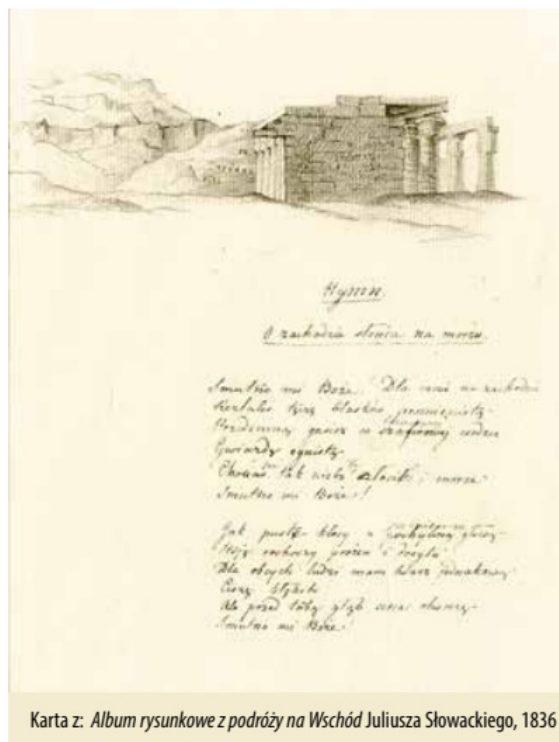 Hymn.
O zachodzie słońca na morzu.
Smutno mi Boże! Dla mnie na zachodzie
Rozlałeś tęczę blasków promienistą
Przedemną gasisz w szafirowej wodzie
Gwiazdę ognistą
Chociaż tak niebo złocisz i morze
Smutno mi Boże!
Jak puste kłosy z
Dla obcych ludzi mam twarz jednakową
Ciszę błękitu
Ale przed tobą głąb serca otworzę
Smutno mi Boże!
Karta z: Album rysunkowe z podróży na Wschód Juliusza Słowackiego, 1836